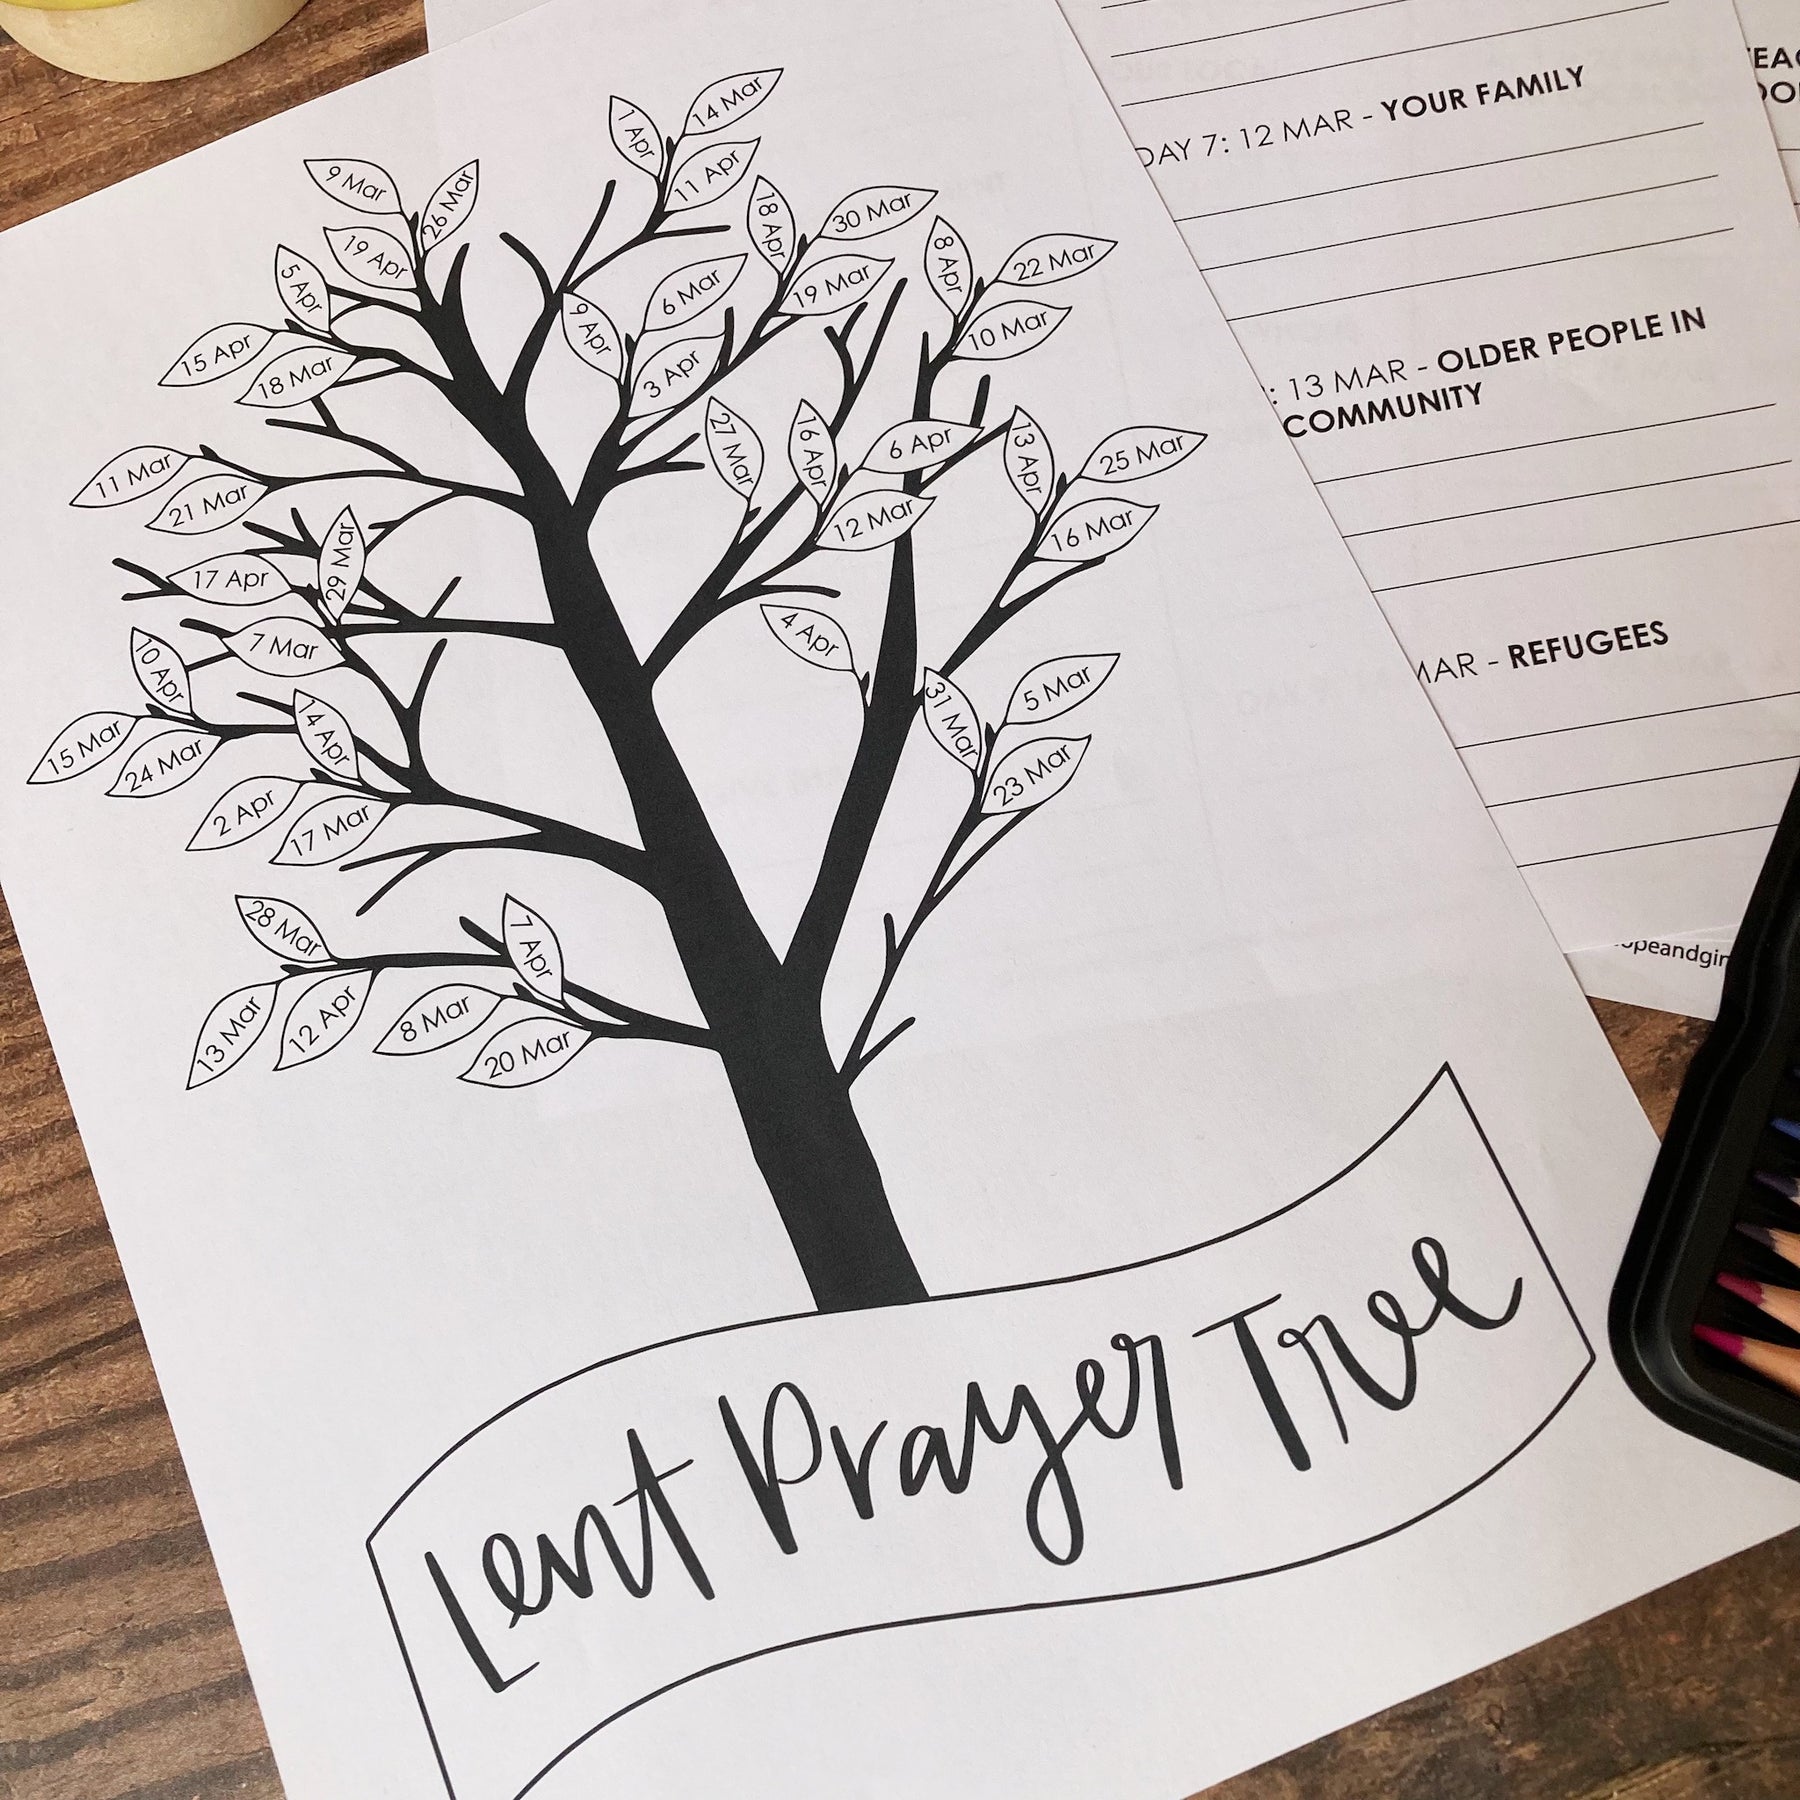 1 Apr
14 Mar
11 Apr
9 Mar
26 Mar
19 Apr
5 Apr
15 Apr
18 Mar
18 Apr
30 Mar
19 Mar
9 Apr
6 Mar
3 Apr
8 Apr
22 Mar
10 Mar
11 Mar
21 Mar
27 Mar
16 Apr
6 Apr
12 Mar
13 Apr
25 Mar
16 Mar
17 Apr
29 Mar
7 Mar
4 Apr
10 Apr
15 Mar
24 Mar
14 Apr
2 Apr
17 Mar
31 Mar
5 Mar
23 Mar
28 Mar
13 Mar
12 Apr
7 Apr
8 Mar
20 Mar
Lent Prayer Tree
DAY 7: 12 MAR - YOUR FAMILY
: 13 MAR - OLDER PEOPLE IN
COMMUNITY
MAR - REFUGEES